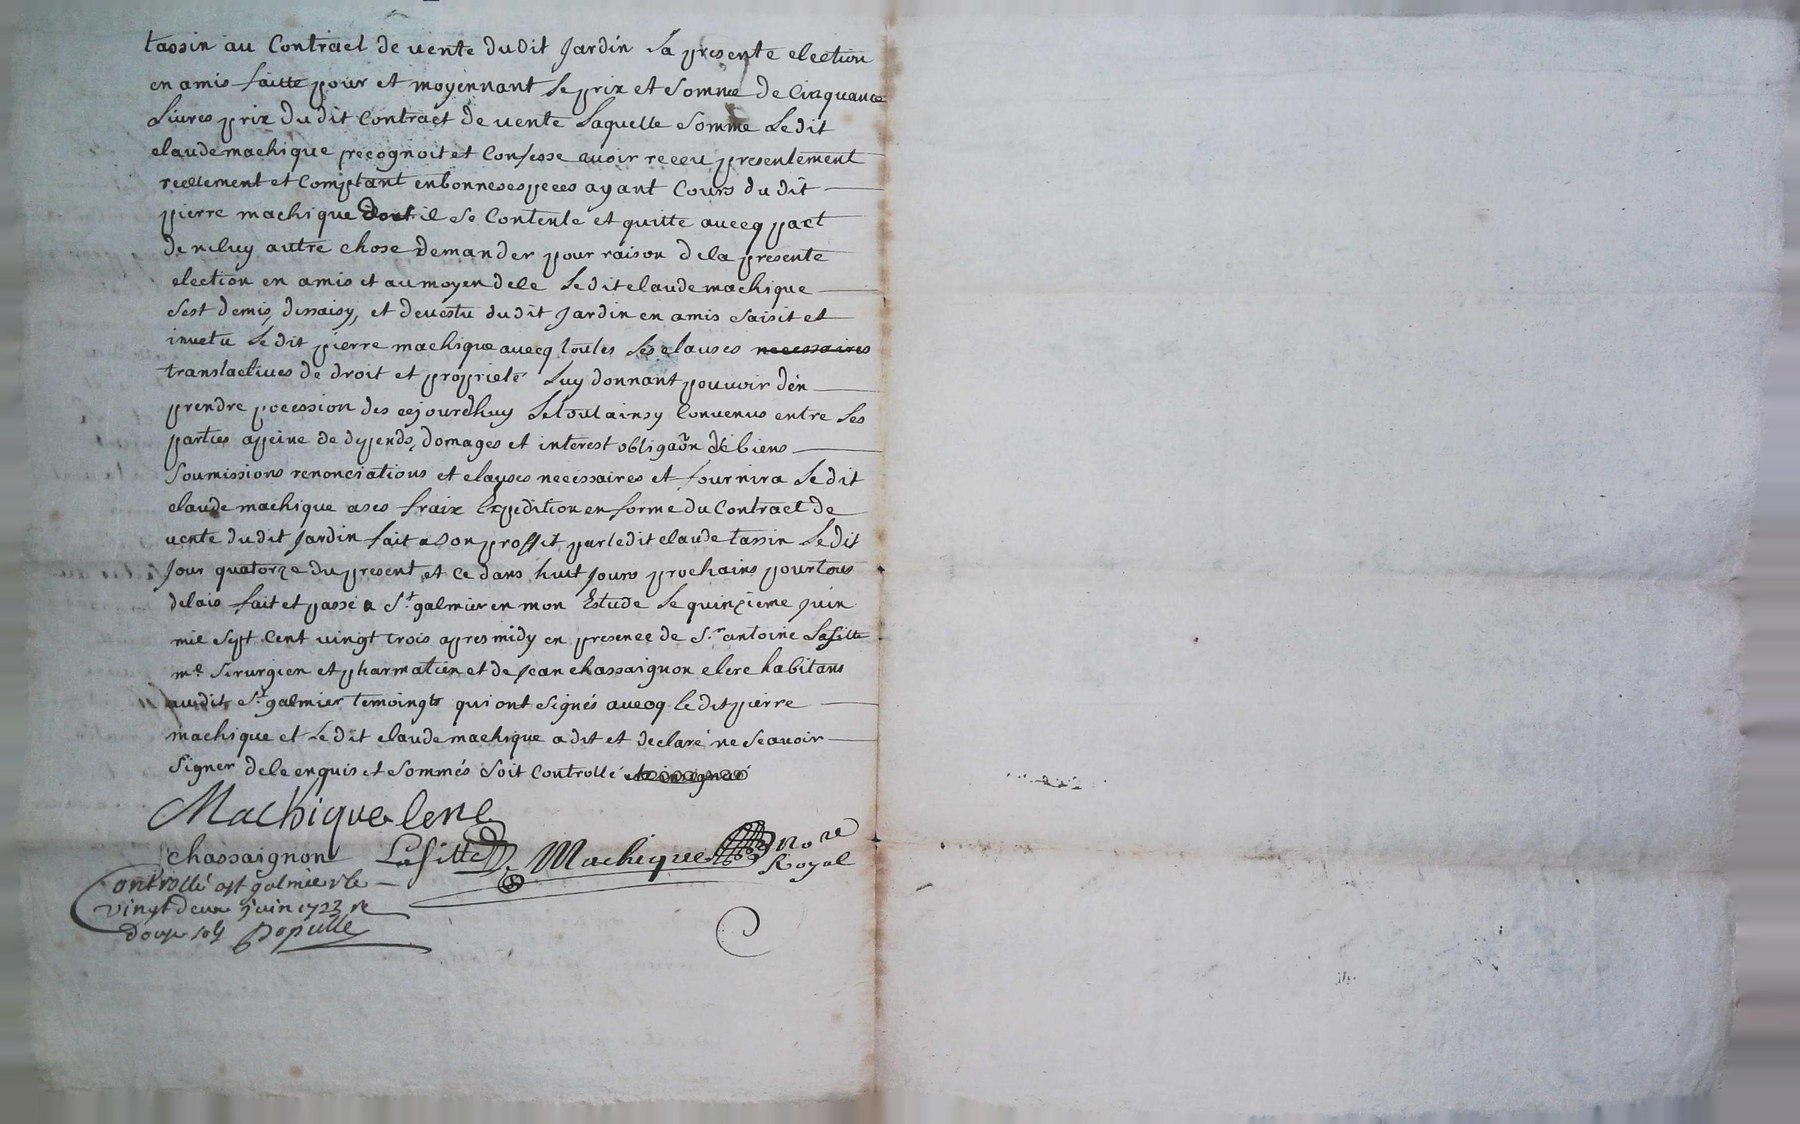 tassin au Contract de vente dudit Jardin la presente election
en amis faitte pour et moyennant le prix et somme de Cinquante
Livres prix dudit Contract de vente laquelle somme le dit
claude machique recognoit et Confesse avoir receu presentement
reellement et Comptant en bonnes especes ayant Cours du dit
pierre machique dont il se Contente et quitte avecq pact
de ne luy autre chose demander pour raison dela presente
election en amis et au moyen dele le dit claude machique
sest demis, dessaisy, et devestu dudit Jardin en amis saisit et
invetu le dit pierre machique avecq toutes les clauses necessaires
translatives de droit et proprieté luy donnant pouvoir den
prendre pocession des cejourdhuy le tout ainsy Convenus entre les
parties apeine de depends, domages et interest obligaôn de biens
soumissions renonciations et clauses necessaires et fournira le dit
claude machique a ses fraix Expedition en forme du Contract de
vente dudit Jardin fait a son proffit par ledit claude tassin le dit
Jour quatorze du present et ce dans huit Jours prochains pour tous
delais fait et passé a St galmier en mon Estude le quinzieme juin
mil sept Cent vingt trois apres midy en presence de Sr antoine Lafitte
me Sirurgien et pharmatien et de Jean chassaignon clerc habitans
audit St galmier temoingts qui ont signés avecq le dit pierre
machique et le dit claude machique a dit et declaré ne scavoir
signer dele enquis et sommés soit Controllé et insignué
Machique
chassaignon Lafitte Machique Nore
Royal
Controllé a st galmier le
vingt deux juin 1723 re
douze sols Populle